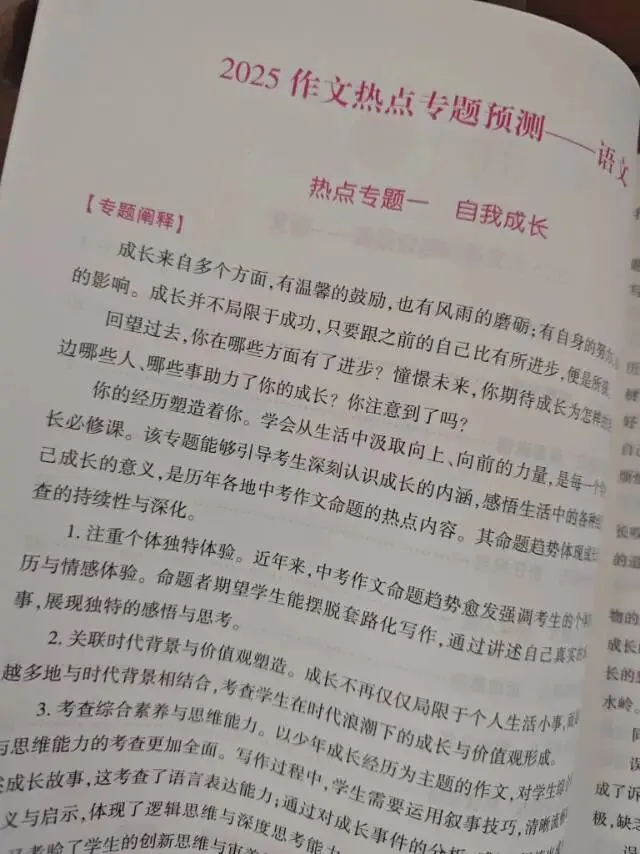 2025 作文热点专题预测——语文
热点专题一 自我成长
【专题阐释】
成长来自多个方面,有温馨的鼓励,也有风雨的磨砺;有自身的努力,
的影响。成长并不局限于成功,只要跟之前的自己比有所进步,便是所获
回望过去,你在哪些方面有了进步?憧憬未来,你期待成长为怎样的
边哪些人、哪些事助力了你的成长?你注意到了吗?
你的经历塑造着你。学会从生活中汲取向上、向前的力量,是每一个
长必修课。该专题能够引导考生深刻认识成长的内涵,感悟生活中的各种
己成长的意义,是历年各地中考作文命题的热点内容。其命题趋势体现
查的持续性与深化。
1. 注重个体独特体验。近年来,中考作文命题趋势愈发强调考生的个
历与情感体验。命题者期望学生能摆脱套路化写作,通过讲述自己真实的
事,展现独特的感悟与思考。
2. 关联时代背景与价值观塑造。成长不再仅仅局限于个人生活小事,而
越多地与时代背景相结合,考查学生在时代浪潮下的成长与价值观形成。
3. 考查综合素养与思维能力。以少年成长经历为主题的作文,对学生综
与思维能力的考查更加全面。写作过程中,学生需要运用叙事技巧,清晰流
成长故事,这考查了语言表达能力;通过对成长事件的分析
义与启示,体现了逻辑思维与深度思考能力
考验了学生的创新思维与审
好
自己
的道
物的
成长的
长的
水岭。
成了诉
极,缺